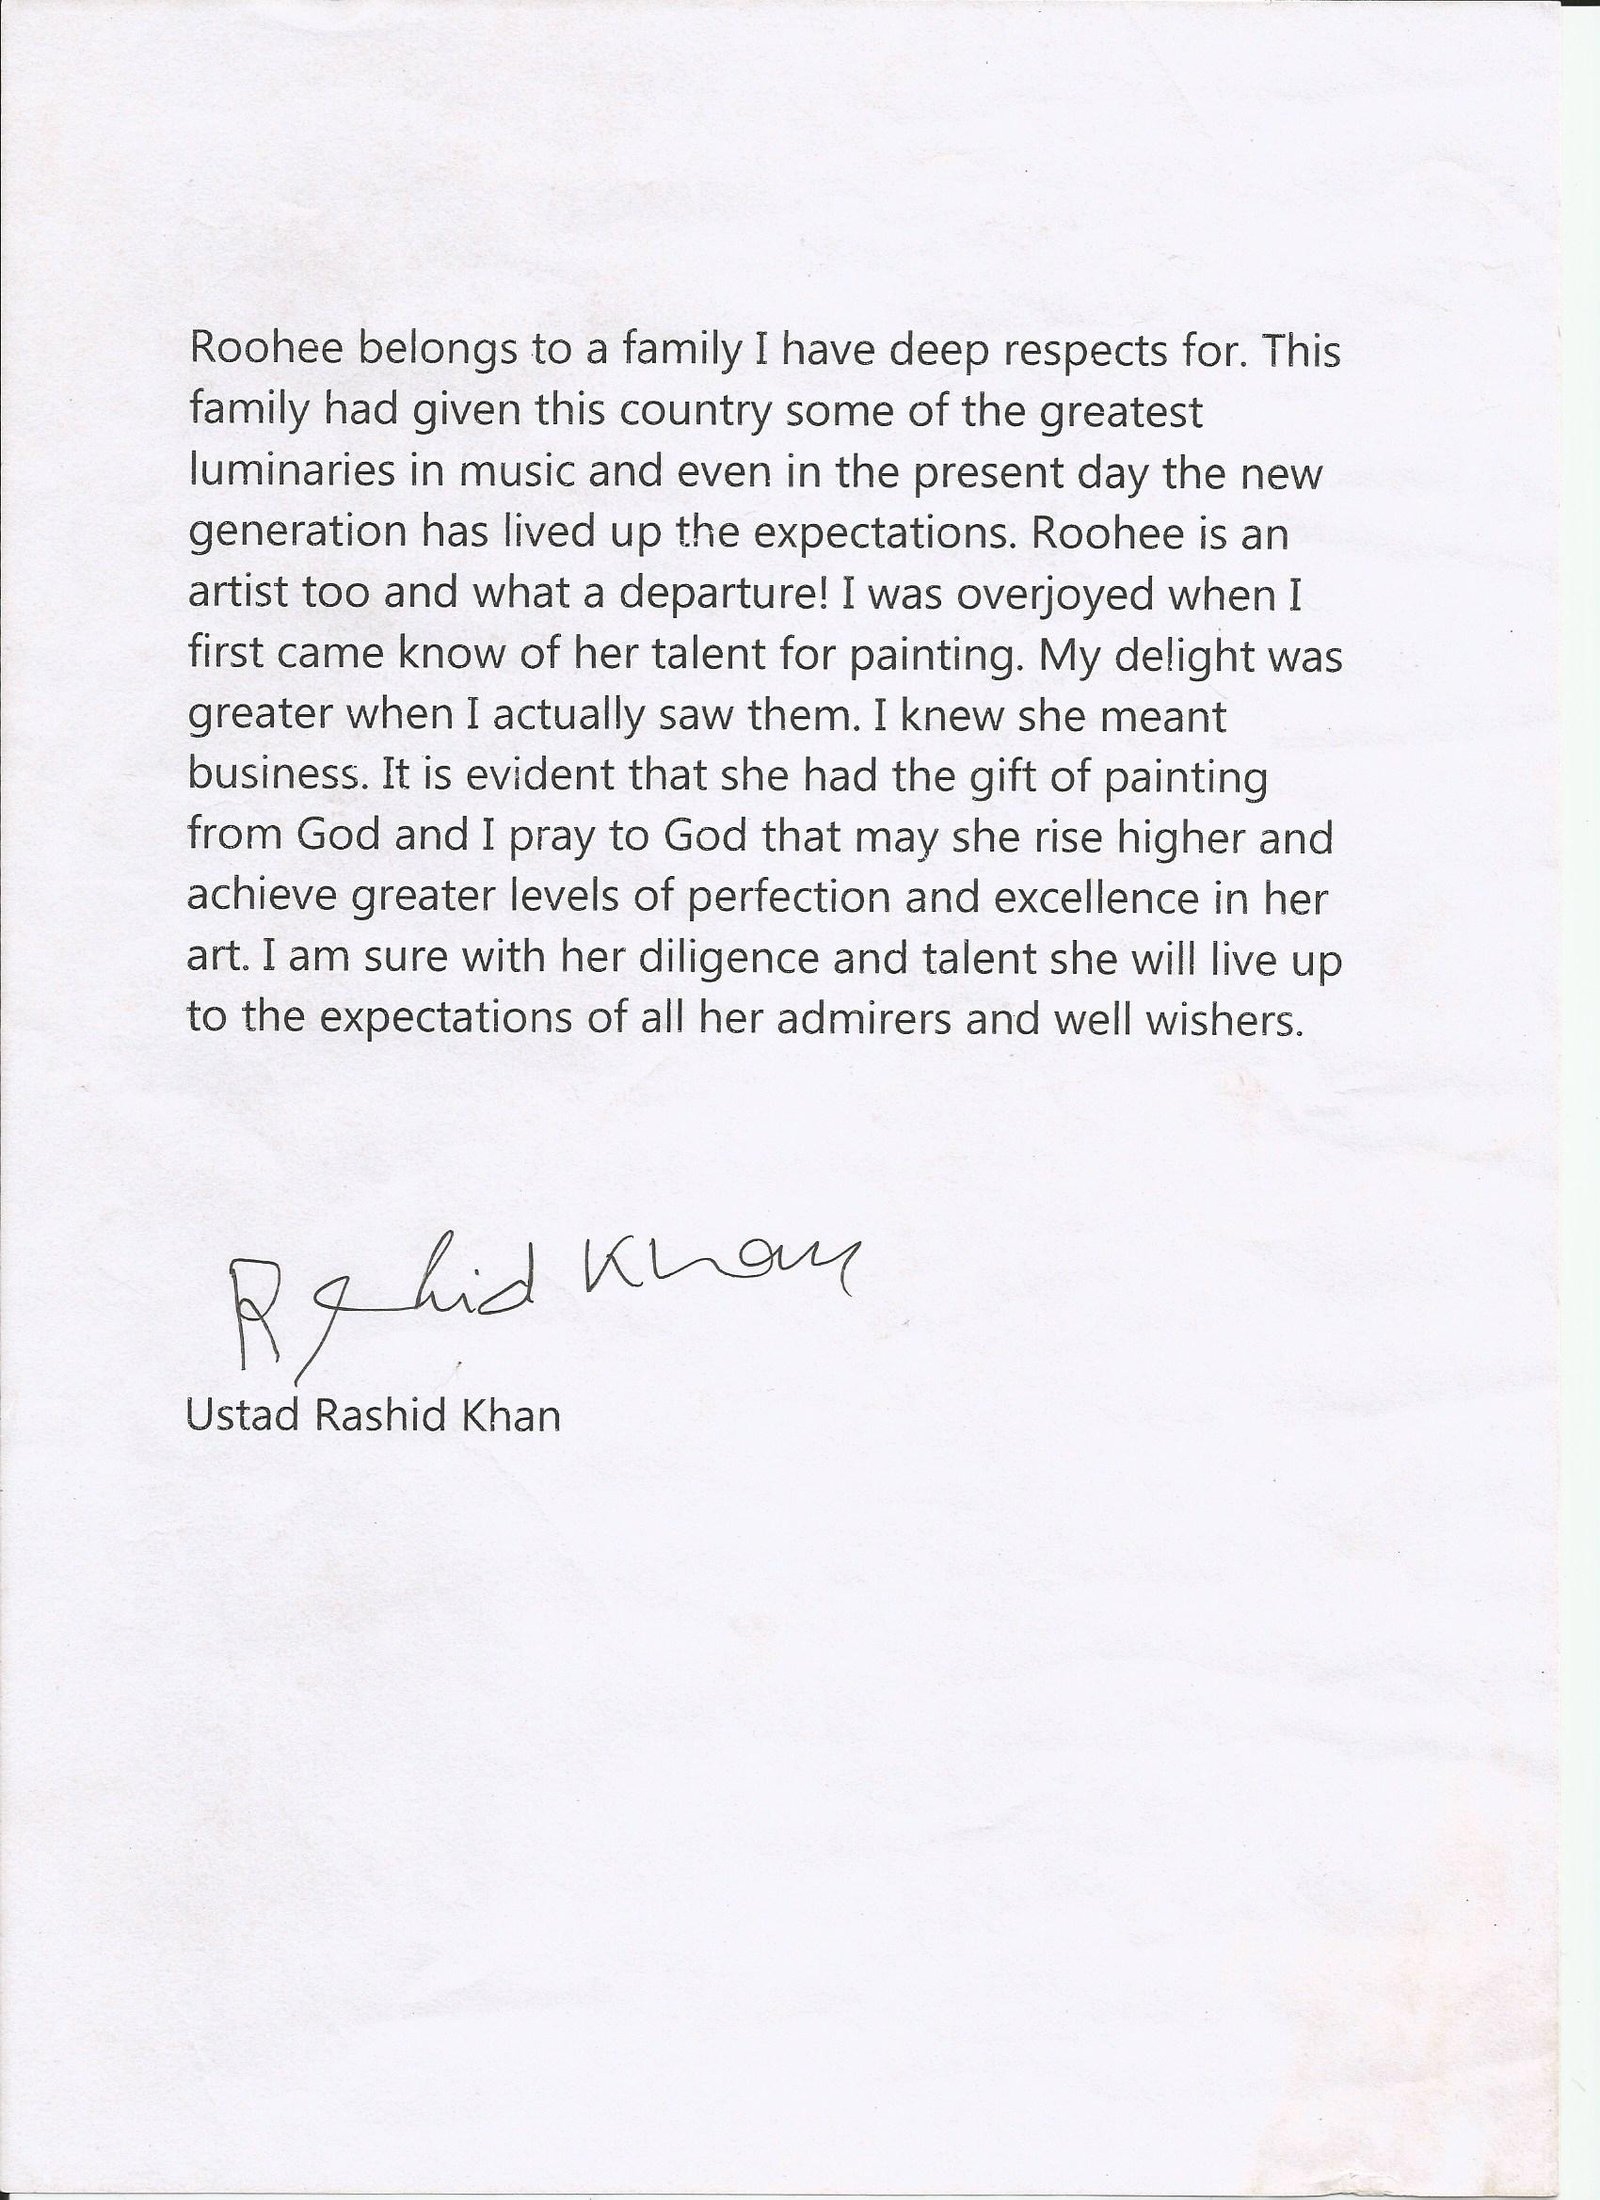 Roohee belongs to a family I have deep respects for. This
family had given this country some of the greatest
luminaries in music and even in the present day the new
generation has lived up the expectations. Roohee is an
artist too and what a departure! I was overjoyed when I
first came know of her talent for painting. My delight was
greater when I actually saw them. I knew she meant
business. It is evident that she had the gift of painting
from God and I pray to God that may she rise higher and
achieve greater levels of perfection and excellence in her
art. I am sure with her diligence and talent she will live up
to the expectations of all her admirers and well wishers.
Rashid Khan
Ustad Rashid Khan